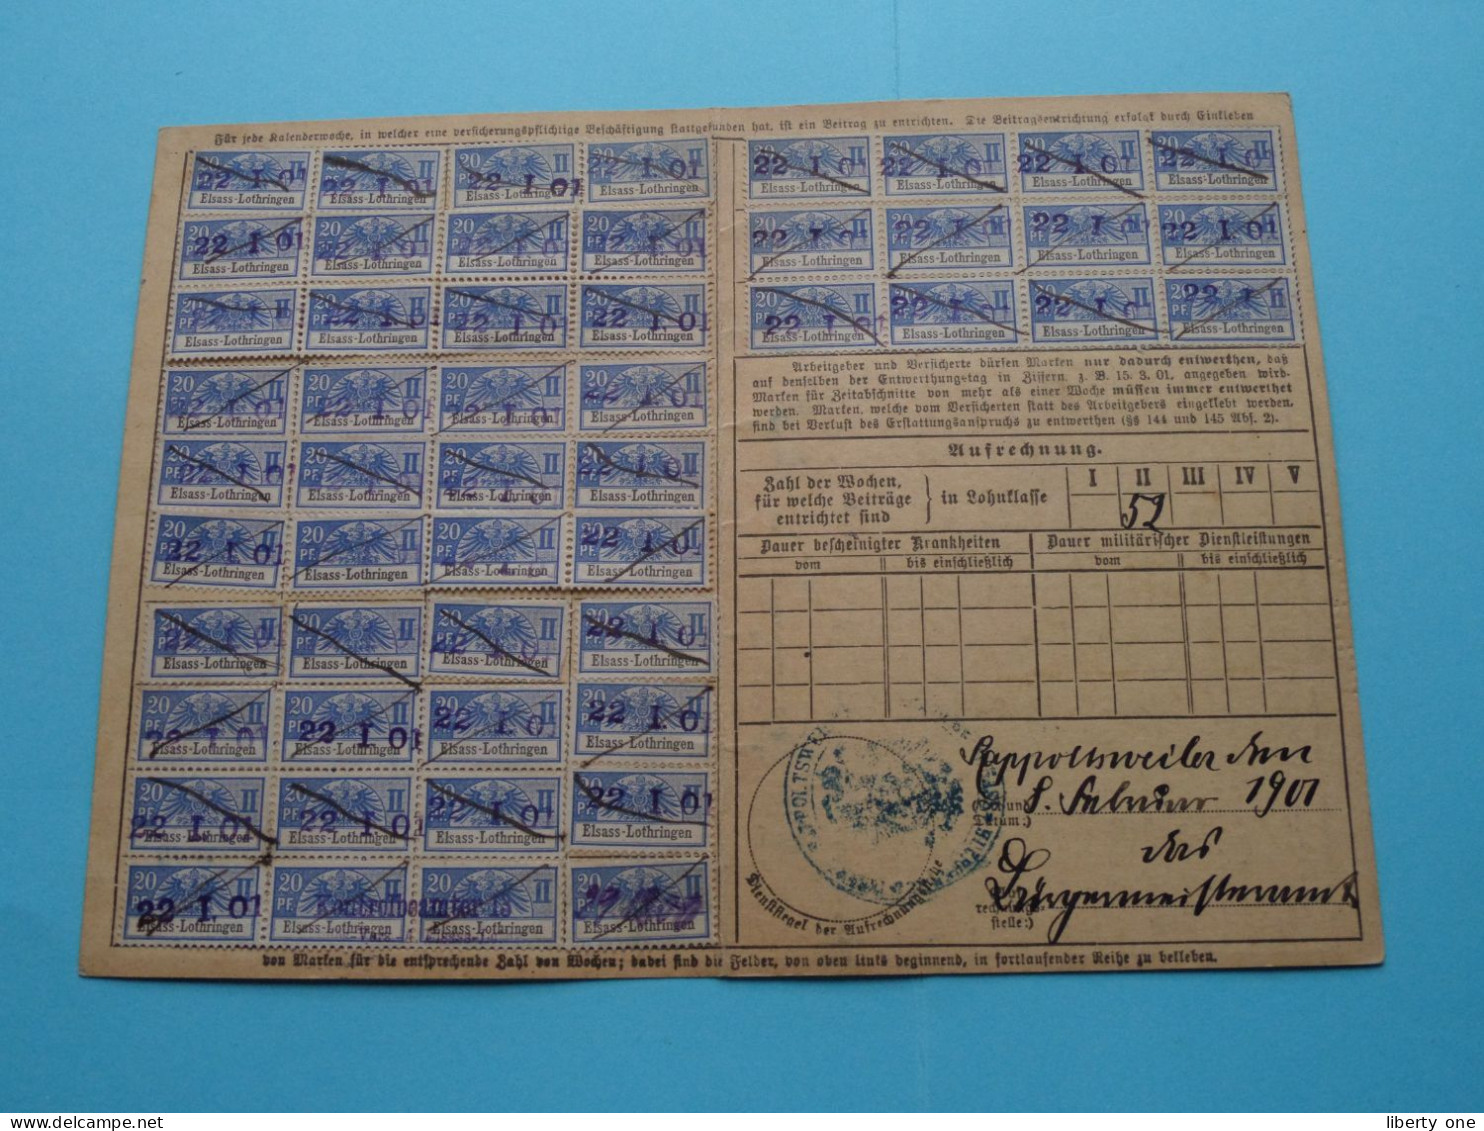 Für jede Kalenderwoche, in welcher eine versicherungspflichtige Beschäftigung stattgefunden hat, ist ein Beitrag zu entrichten. Die Beitragsentrichtung erfolgt durch Einkleben
20 PF. II Elsass-Lothringen
22 I 01
Kontrolbeamter 15
Arbeitgeber und Versicherte dürfen Marken nur dadurch entwerthen, daß
auf denselben der Entwerthungstag in Ziffern, z. B. 15. 3. 01, angegeben wird.
Marken für Zeitabschnitte von mehr als einer Woche müssen immer entwerthet
werden. Marken, welche vom Versicherten statt des Arbeitgebers eingeklebt werden,
sind bei Verlust des Erstattungsanspruchs zu entwerthen (§§ 144 und 145 Abs. 2).
Aufrechnung.
Zahl der Wochen,
für welche Beiträge
entrichtet sind
in Lohnklasse
I II III IV V
52
Dauer bescheinigter Krankheiten
Dauer militärischer Dienstleistungen
vom bis einschließlich vom bis einschließlich
Rappoltsweiler den
8. Februar 1901
das
Bürgermeisteramt
stelle:)
Dienstsiegel der Aufrechnungsstelle
von Marken für die entsprechende Zahl von Wochen; dabei sind die Felder, von oben links beginnend, in fortlaufender Reihe zu bekleben.
liberty one